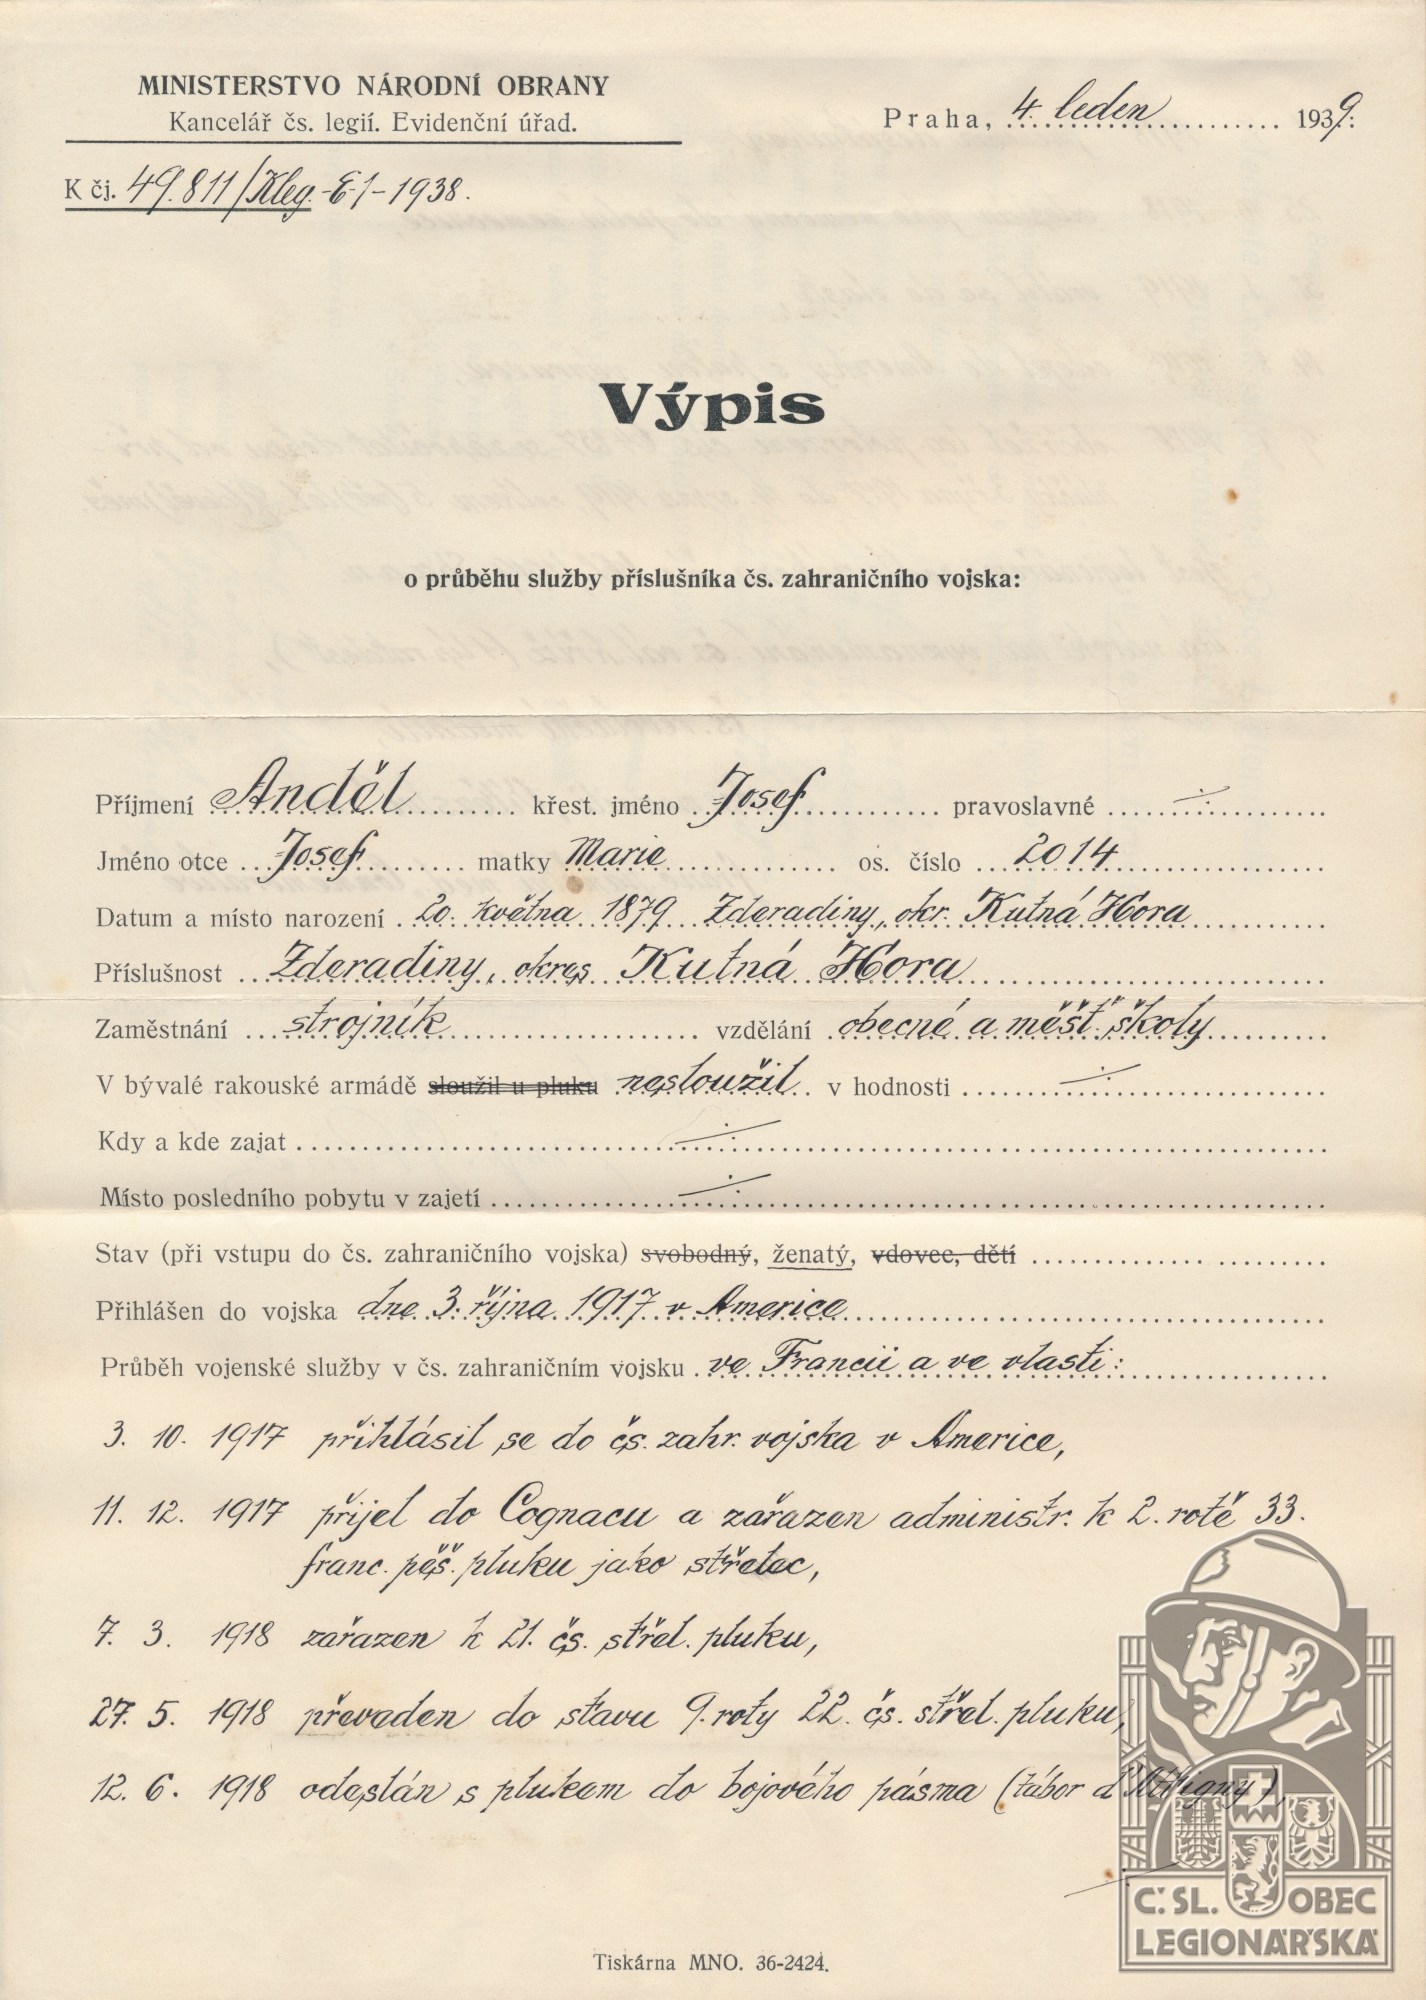 MINISTERSTVO NÁRODNÍ OBRANY
Kancelář čs. legií. Evidenční úřad.
Praha, 4. leden 1939.
K čj. 49.811/Kleg.-E-1-1938.
Výpis
o průběhu služby příslušníka čs. zahraničního vojska:
Příjmení Anděl křest. jméno Josef pravoslavné
Jméno otce Josef matky Marie os. číslo 2014
Datum a místo narození 20. května 1879 Zderadiny, okr. Kutná Hora
Příslušnost Zderadiny, okres Kutná Hora
Zaměstnání strojník vzdělání obecné a měšť. školy
V bývalé rakouské armádě sloužil u pluku nesloužil v hodnosti
Kdy a kde zajat
Místo posledního pobytu v zajetí
Stav (při vstupu do čs. zahraničního vojska) svobodný, ženatý, vdovec, dětí
Přihlášen do vojska dne 3. října 1917 v Americe
Průběh vojenské služby v čs. zahraničním vojsku ve Francii a ve vlasti:
3. 10. 1917 přihlásil se do čs. zahr. vojska v Americe,
11. 12. 1917 přijel do Cognacu a zařazen administr. k 2. rotě 33.
franc. pěš. pluku jako střelec,
7. 3. 1918 zařazen k 21. čs. střel. pluku,
27. 5. 1918 převeden do stavu 9. roty 22. čs. střel. pluku,
12. 6. 1918 odeslán s plukem do bojového pásma (tábor
Č. SL. OBEC
LEGIONÁŘSKÁ
Tiskárna MNO. 36-2424.